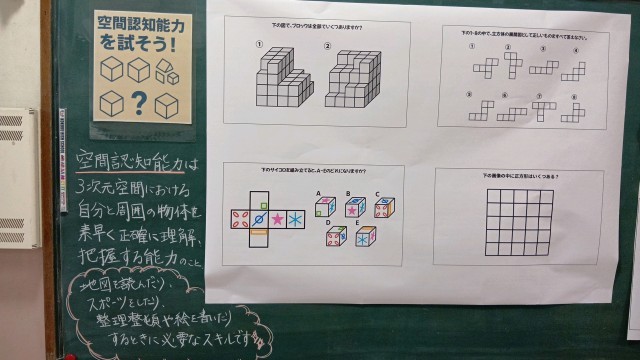 空間認知能力
を試そう!
?
空間認知能力は
3次元空間における
自分と周囲の物体を
素早く正確に理解、
把握する能力のこと
地図を読んだり、
スポーツをしたり、
整理整頓や絵を書いたり
するときに必要なスキルです
下の図で、ブロックは全部でいくつありますか?
① ②
下の1~8の中で、立方体の展開図として正しいものをすべて答えなさい。
① ② ③ ④
⑤ ⑥ ⑦ ⑧
下のサイコロを組み立てると、A~Eのどれになりますか?
A B C
D E
下の画像の中に正方形はいくつある?